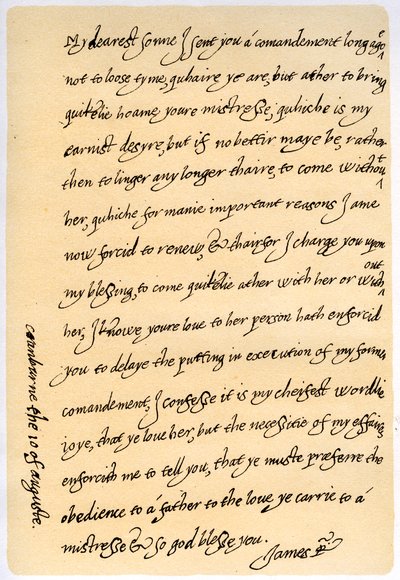 My dearest sonne I sent you a comandement long agoe
not to loose tyme, quhaire ye are, but ather to bring
quikelie hoame youre mistresse, quhiche is my
earnist desyre, but if no bettir maye be, rather
then to linger any longer thaire, to come without
her, quhiche for manie important reasons I ame
now forcid to renew, & thairfor I charge you upon
my blessing, to come quikelie ather with her or without
her, I knowe youre loue to her person hath enforcid
you to delaye the putting in execution of my former
comandement, I confesse it is my cheifest wordlie
ioye, that ye loue her, but the necessitie of my effaires
enforcith me to tell you, that ye muste præferre the
obedience to á father to the loue ye carrie to á
mistresse & so god blesse you.
James R
cranburne the 10 of auguste.